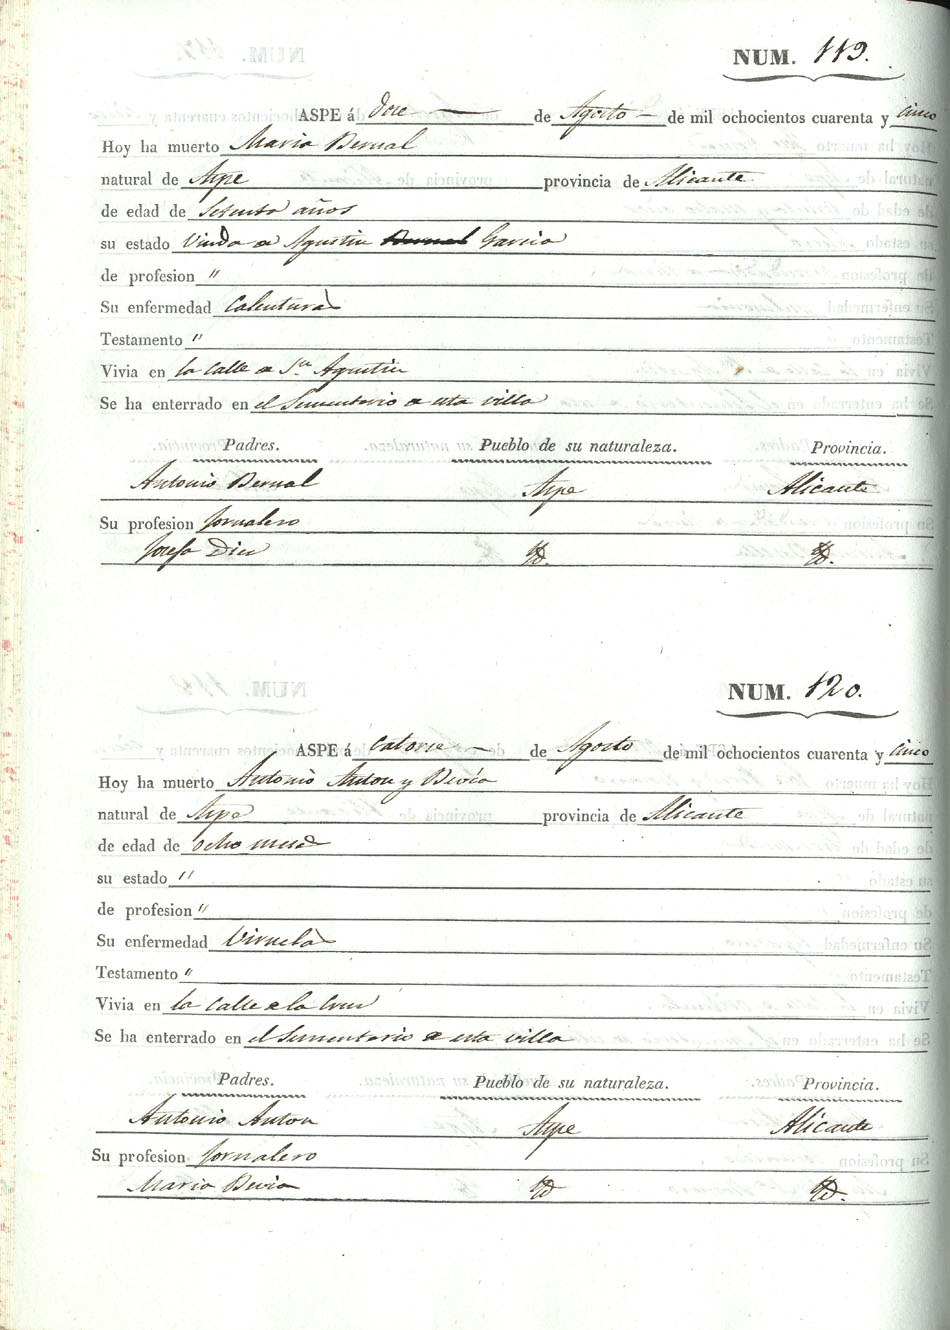 NUM. 119.
ASPE á doce de Agosto de mil ochocientos cuarenta y cinco
Hoy ha muerto Maria Bernal
natural de Aspe provincia de Alicante
de edad de setenta años
su estado Viuda de Agustin Bernal Garcia
de profesion "
Su enfermedad Calenturas
Testamento "
Vivia en la calle de Sn Agustin
Se ha enterrado en el Sementerio de esta villa
Padres. Pueblo de su naturaleza. Provincia.
Antonio Bernal Aspe Alicante
Su profesion Jornalero
Josefa Dies Yd. Yd.
NUM. 120.
ASPE á catorce de Agosto de mil ochocientos cuarenta y cinco
Hoy ha muerto Antonio Anton y Bevía
natural de Aspe provincia de Alicante
de edad de ocho meses
su estado "
de profesion "
Su enfermedad Viruelas
Testamento "
Vivia en la calle de la Cruz
Se ha enterrado en el Sementerio de esta villa
Padres. Pueblo de su naturaleza. Provincia.
Antonio Anton Aspe Alicante
Su profesion Jornalero
Maria Bevia Yd Yd.